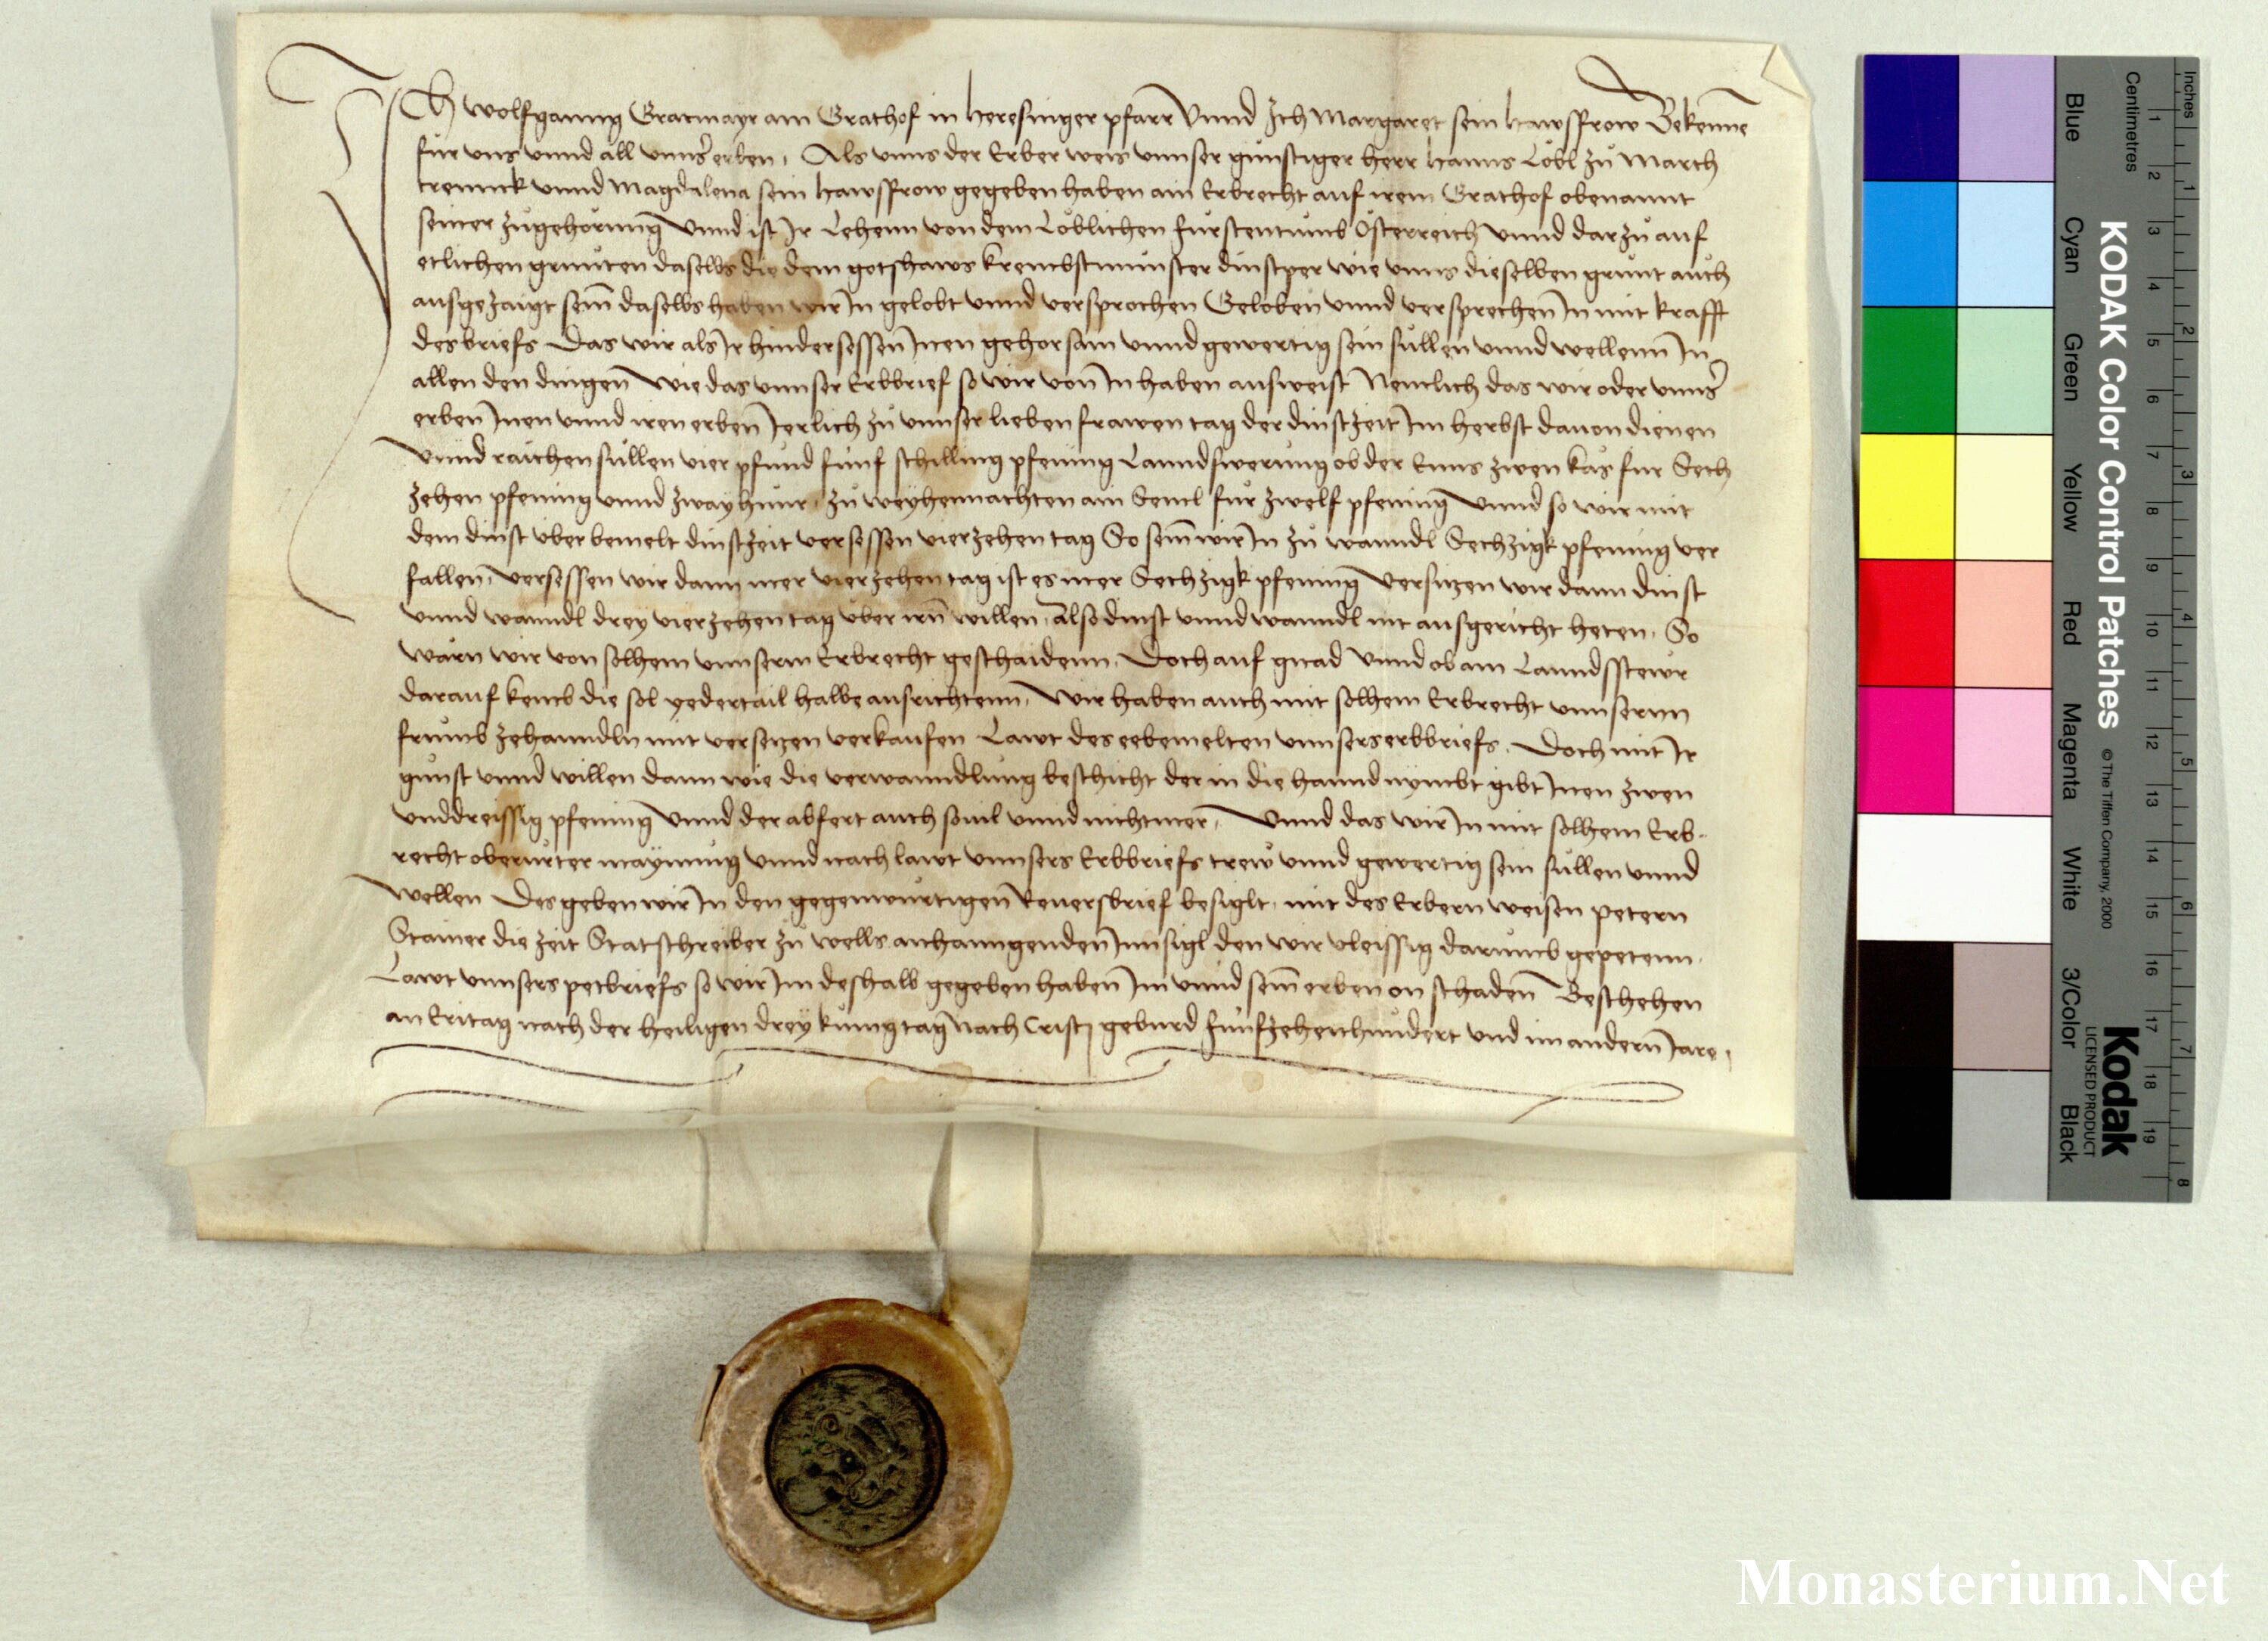 Ich Wolfganng Gratmayr am Grathof in Heresinger pfarr Vnnd Ich Margaret sein Hawsffrow Bekenne
für vns vnnd all vnns erben, Als vnns der Erber weis vnnser günstiger herr Hanns Löbl zů March
trennck vnnd Magdalena sein Hawsffrow gegeben haben ain Erbrecht auf irem Grathof obenannt
seiner zůgehörung Vnnd ist Ir Lehenn von dem Löblichen fürstentumb Österreich Vnnd darzů auf
etlichen grunten daselbs die dem gotshaws Krembsmunster dinstper wie vnns dieselben grünt auch
ausgezaigt sein daselbs haben wir In gelobt vnnd versprochen Geloben vnnd versprechen In mit krafft
des briefs Das wir als Ir hindersessen Inen gehorsam vnnd gewertig sein süllen vnnd wellenn In
allen den dingen Wie das vnnser Erbbrief so wir von In haben ausweist Nemlich das wir oder vnns
erben Inen vnnd iren erben Ierlich zů vnnser lieben frawen tag der dinstzeit Im herbst dauon dienen
Vnnd raichen süllen vier pfund fünf schilling pfening Lanndswerung ob der Enns zwen käs für Sech
zehen pfening vnnd zway hünr, zů weyhennachten ain Seml für zwelf pfening Vnnd so wir mit
dem dinst über bemelt dinstzeit versessen vierzehen tag So sein wir In zů wanndl Sechzigk pfening ver
fallen, versessen wir dann mer vierzehen tag ist es mer Sechzigk pfening Versitzen wir dann dinst
vnnd wanndl drey vierzehen tag über irn willen, Also dinst vnnd wanndl nit ausgericht heten, So
wärn wir von solhem vnnserm Erbrecht geschaidenn, Doch auf gnad Vnnd ob am Lanndsstewr
darauf kemb die sol yedertail halbe ausrichtenn, Wir haben auch mit solhem Erbrecht vnnsernn
frumb zehanndln mit versetzen verkaufen Lawt des eebemelten vnnsers erbbriefs, Doch mit Ir
günst vnnd willen dann wie die verwanndlung beschicht der in die hannd nymbt gibt Inen zwen
vnddreissig pfening Vnnd der abfert auch souil vnnd nicht mer, Vnnd das wir In mit solhem Erb-
recht oberürter maynung vnnd nach lawt vnnsers Erbbriefs trew vnnd gewertig sein süllen vnnd
Wellen Des geben wir In den gegenwurtigen Reuersbrief besiglt, mit des Erbern weisen petern
Stainer die zeit Statschreiber zů wells anhanngenden Innsigl den wir vleissig darumb gepetenn,
Lawt vnnsers petbriefs so wir Im deshalb gegeben haben Im vnnd sein erben on schaden Beschehen
an Eritag nach der heiligen drey kunig tag Nach Cristj geburd fünfzehenhundert vnd im andern Iare,
KODAK Color Control Patches
© The Tiffen Company, 2000
Kodak
LICENSED PRODUCT
Blue Cyan Green Yellow Red Magenta White 3/Color Black
Centimetres 1 2 3 4 5 6 7 8 9 10 11 12 13 14 15 16 17 18 19
Inches 1 2 3 4 5 6 7 8
Monasterium.Net